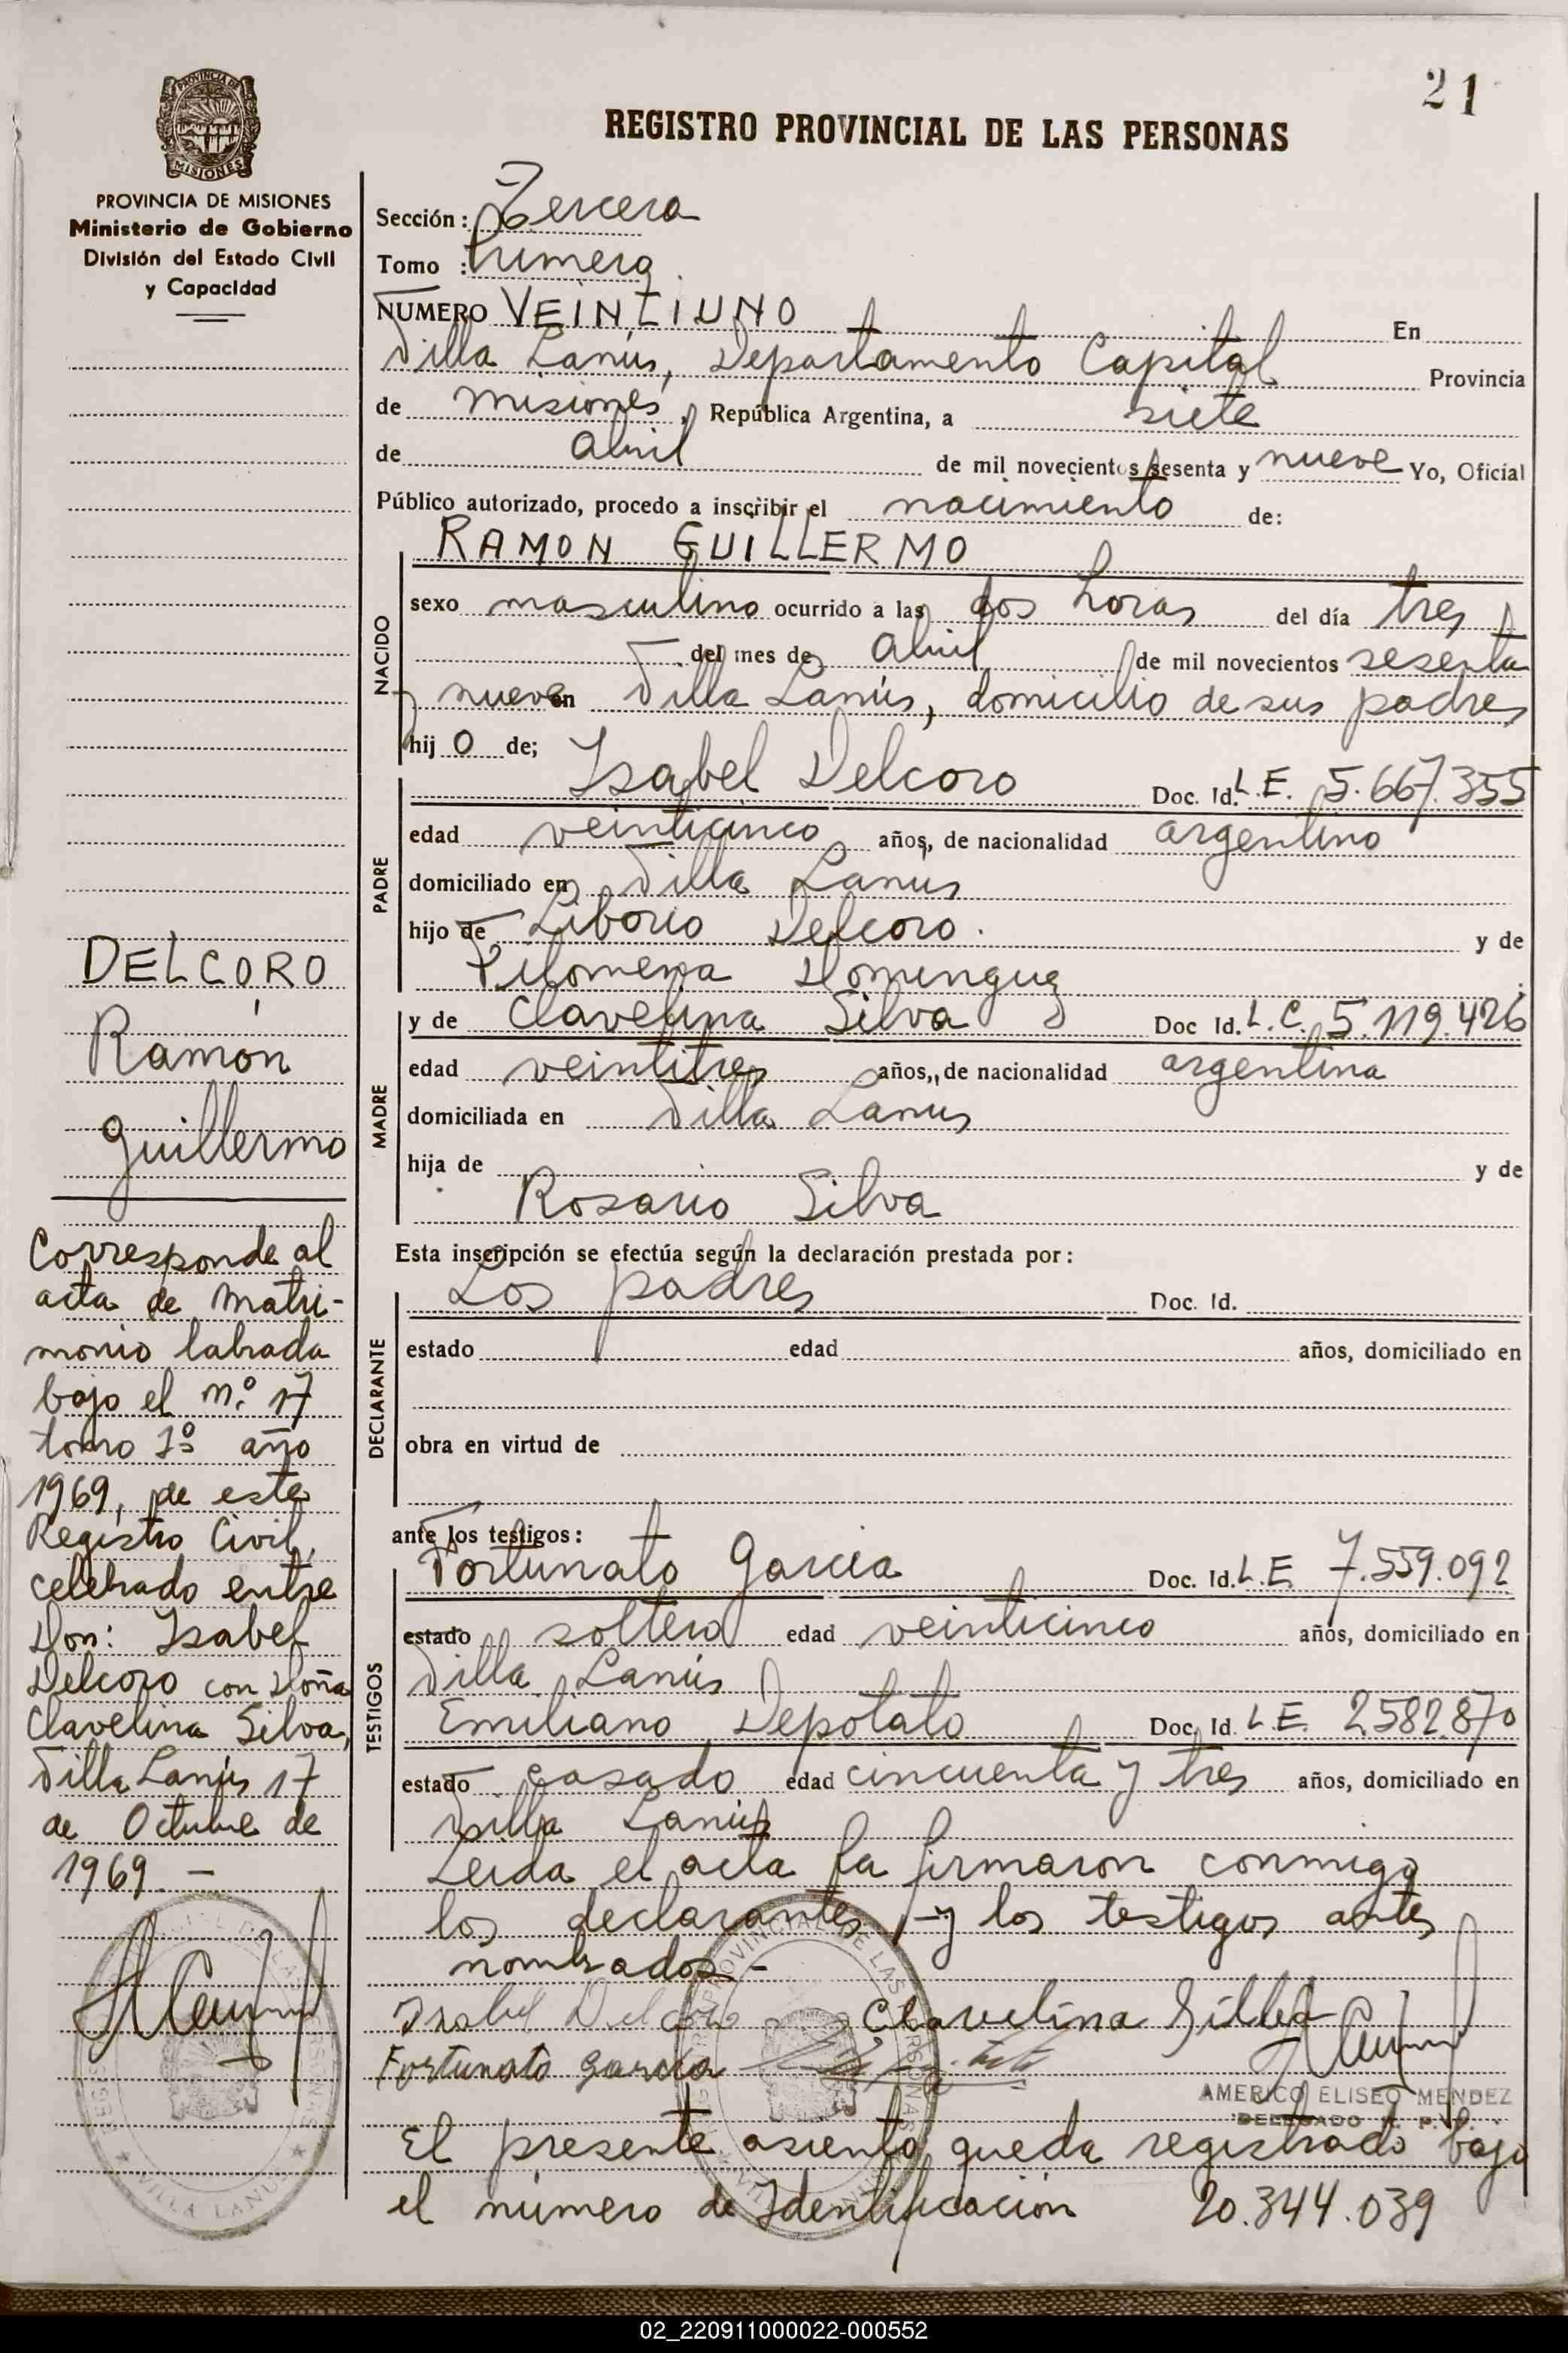 21
REGISTRO PROVINCIAL DE LAS PERSONAS
PROVINCIA DE MISIONES
PROVINCIA DE MISIONES
Ministerio de Gobierno
División del Estado Civil
y Capacidad
Sección: Tercera
Tomo : Primera
NUMERO VEINTIUNO En
Villa Lanús, Departamento Capital Provincia
de Misiones, República Argentina, a siete
de Abril de mil novecientos sesenta y nueve Yo, Oficial
Público autorizado, procedo a inscribir el nacimiento de:
NACIDO
RAMON GUILLERMO
sexo masculino ocurrido a las dos horas del día tres
del mes de Abril de mil novecientos sesenta
y nueve en Villa Lanús, domicilio de sus padres
hij o de;
PADRE
Isabel Delcoro Doc. Id. L.E. 5.667.355
edad veinticinco años, de nacionalidad argentino
domiciliado en Villa Lanus
hijo de Liborio Delcoro. y de
Filomena Dominguez
MADRE
y de Clavelina Silva Doc Id. L.C. 5.119.426
edad veintitres años, de nacionalidad argentina
domiciliada en Villa Lanus
hija de y de
Rosario Silva
Esta inscripción se efectúa según la declaración prestada por:
DECLARANTE
Los padres Doc. Id.
estado edad años, domiciliado en
obra en virtud de
ante los testigos:
TESTIGOS
Fortunato Garcia Doc. Id. L.E 7.559.092
estado soltero edad veinticinco años, domiciliado en
Villa Lanús
Emiliano Depotato Doc. Id. L.E. 2.582.870
estado casado edad cincuenta y tres años, domiciliado en
Villa Lanús
Leida el acta la firmaron conmigo
los declarantes, y los testigos antes
nombrados -
Isabel Delcoro Clavelina Silba
Fortunato Garcia
AMERICO ELISEO MENDEZ
DELEGADO R. P. P.
El presente asiento queda registrado bajo
el número de Identificación 20.344.039
DELCORO
Ramón
Guillermo
Corresponde al
acta de Matri-
monio labrada
bajo el n.º 17
tomo 1º año
1969, de este
Registro Civil,
celebrado entre
Don: Isabel
Delcoro con Doña
Clavelina Silva,
Villa Lanús 17
de Octubre de
1969 -
VILLA LANUS
02_220911000022-000552